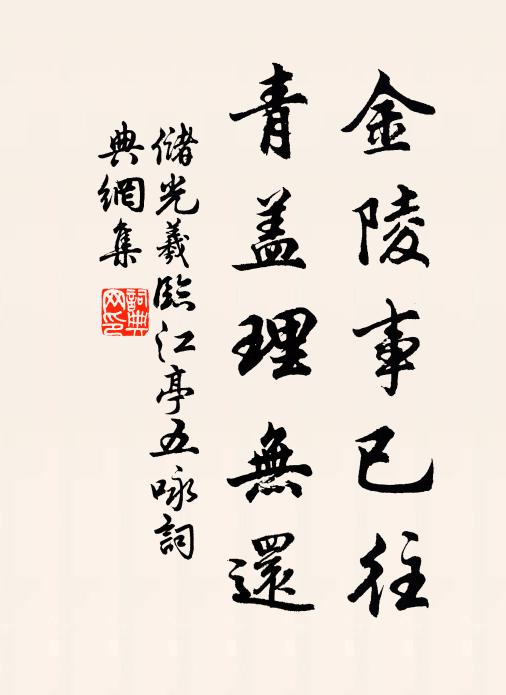 金陵事已往
青盖理無還
儲光羲臨江亭五咏詞
典網集
詞典网印